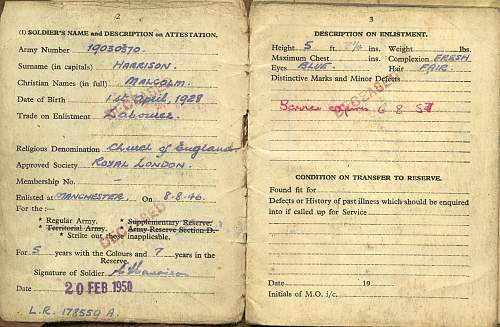 2
(1) SOLDIER'S NAME and DESCRIPTION on ATTESTATION.
Army Number 19030370.
Surname (in capitals) HARRISON.
Christian Names (in full) MALCOLM.
Date of Birth 1st April, 1928
Trade on Enlistment Labourer.
DECEASED
Religious Denomination Church of England
Approved Society ROYAL LONDON.
Membership No. –
Enlisted at MANCHESTER. On 8-8-46.
For the :—
* Regular Army. * Supplementary Reserve.
* Territorial Army. * Army Reserve Section D.
* Strike out those inapplicable.
DECEASED
For 5 years with the Colours and 7 years in the
Reserve.
Signature of Soldier M Harrison
Date 20 FEB 1950
L.R. 178559 A.
3
DESCRIPTION ON ENLISTMENT.
Height 5 ft. ins. Weight lbs.
Maximum Chest ins. Complexion FRESH
Eyes BLUE. Hair FAIR
Distinctive Marks and Minor Defects
DECEASED
expires 6 8
CONDITION ON TRANSFER TO RESERVE.
Found fit for
Defects or History of past illness which should be enquired
into if called up for Service
Date 19
Initials of M.O. i/c.